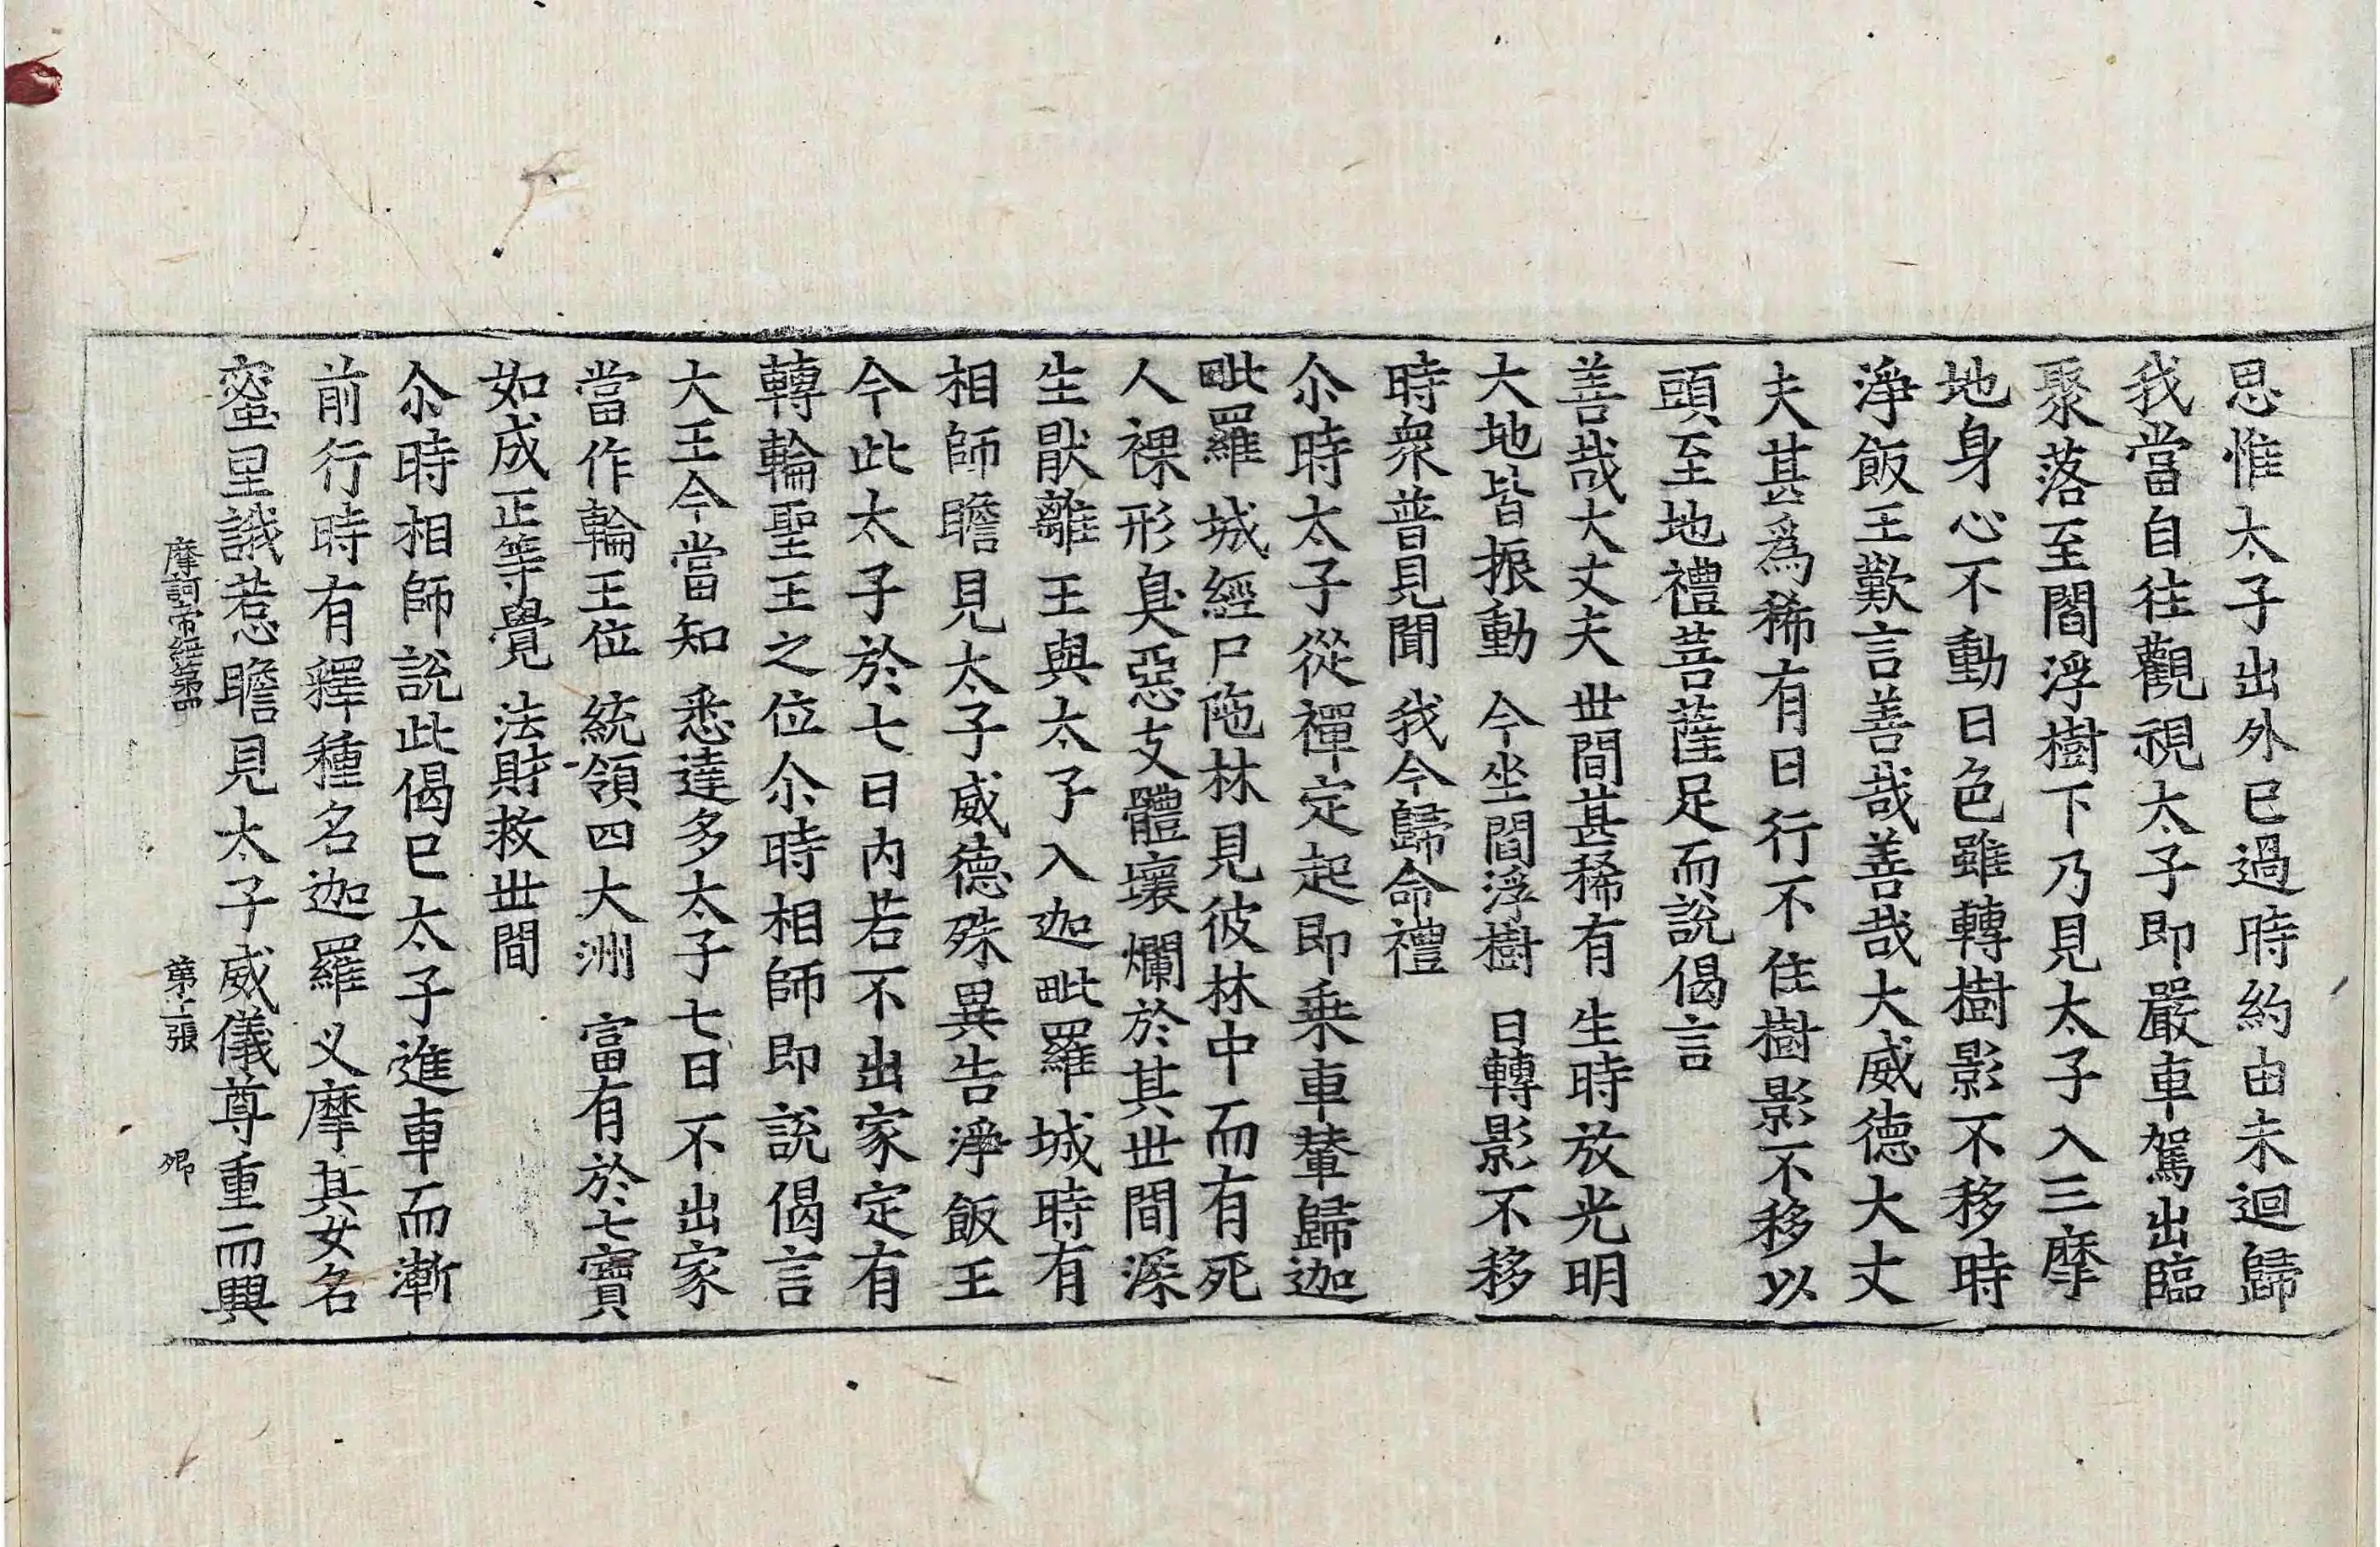 思惟太子出外已過時約由未迴歸
我當自往觀視太子即嚴車駕出臨
聚落至閻浮樹下乃見太子入三摩
地身心不動日色雖轉樹影不移時
淨飯王歎言善哉善哉大威德大丈
夫甚爲稀有日行不住樹影不移以
頭至地禮菩薩足而說偈言
善哉大丈夫　世間甚稀有　生時放光明
大地皆振動　今坐閻浮樹　日轉影不移
時衆普見聞　我今歸命禮
尒時太子從禪定起即乗車輦歸迦
毗羅城經尸陁林見彼林中而有死
人裸形臭惡支體壞爛於其世間深
生猒離王與太子入迦毗羅城時有
相師瞻見太子威德殊異告淨飯王
今此太子於七日内若不出家定有
轉輪聖王之位尒時相師即說偈言
大王今當知　悉達多太子　七日不出家
當作輪王位　統領四大洲　富有於七寶
如成正等覺　法財救世間
尒時相師說此偈已太子進車而漸
前行時有釋種名迦羅叉摩其女名
蜜里誐惹瞻見太子威儀尊重而興
摩訶帝經第四　第十張　卿